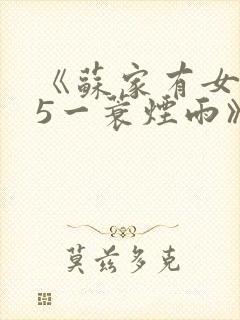 《蘇家有女
5一蓑煙雨》
莫兹多克